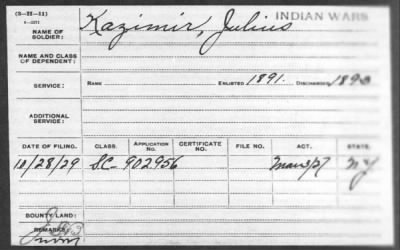 (3-22-21)
NAME OF SOLDIER: Kazimir, Julius INDIAN WARS
NAME AND CLASS OF DEPENDENT:
SERVICE: RANK ENLISTED 1891. DISCHARGED 1893
ADDITIONAL SERVICE:
DATE OF FILING. CLASS. APPLICATION NO. CERTIFICATE NO. FILE NO. ACT. STATE.
10/28/29 S.C- 902956 Mar 3/27 NY
BOUNTY LAND:
REMARKS: